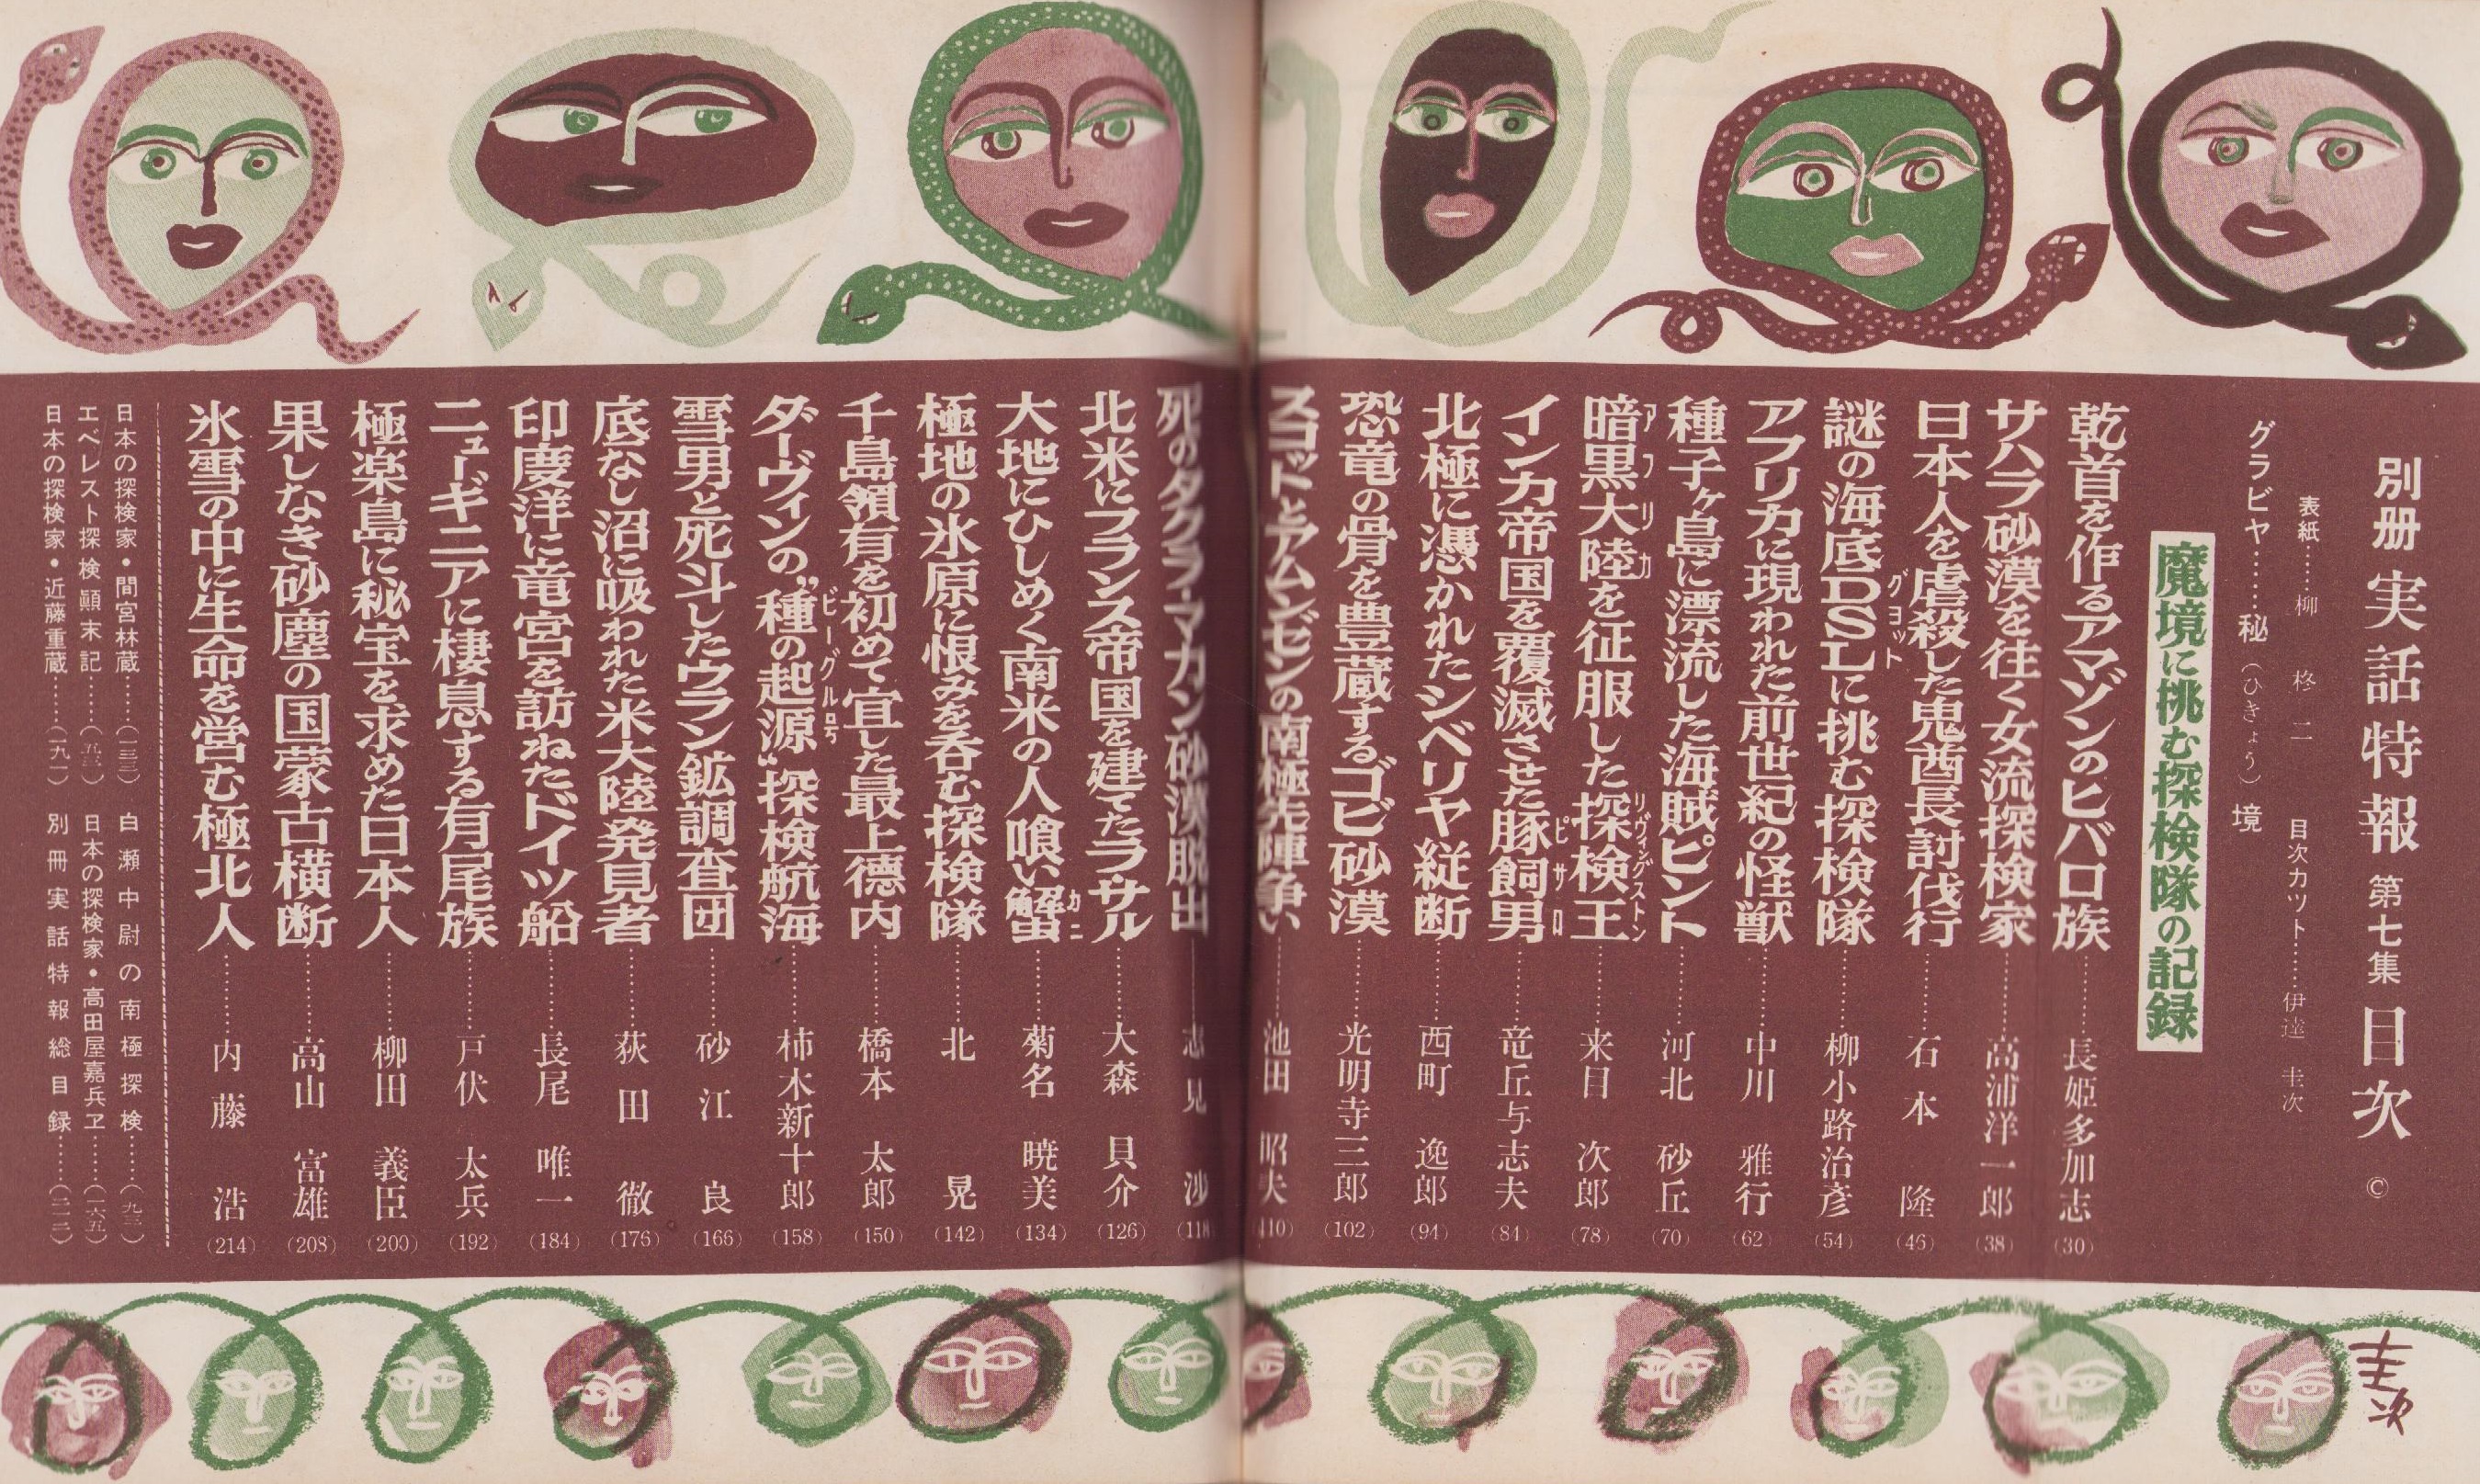 別册 実話特報 第七集 目次 ©
表紙……柳 柊二 目次カツト……伊達圭次
グラビヤ……秘(ひきょう)境
魔境に挑む探検隊の記録
乾首を作るアマゾンのヒバロ族……長姫多加志(30)
サハラ砂漠を往く女流探検家……高浦洋一郎(38)
日本人を虐殺した鬼酋長討伐行……石本 隆(46)
謎の海底DSLに挑む探検隊……柳小路治彦(54)
グヨット
アフリカに現われた前世紀の怪獣……中川 雅行(62)
種子ヶ島に漂流した海賊ピント……河北 砂丘(70)
暗黒大陸を征服した探検王……来目 次郎(78)
アフリカ リヴィングストン
インカ帝国を覆滅させた豚飼男……竜丘与志夫(84)
ピサロ
北極に憑かれたシベリヤ縦断……西町 逸郎(94)
恐竜の骨を豊蔵するゴビ砂漠……光明寺三郎(102)
スコットとアムンゼンの南極先陣争い……池田 昭夫(110)
死のタクラ・マカン砂漠脱出……志見 沙(118)
北米にフランス帝国を建てたラ・サル……大森 貝介(126)
大地にひしめく南米の人喰い蟹……菊名 暁美(134)
カニ
極地の氷原に恨みを呑む探検隊……北 晃(142)
千島領有を初めて宣した最上德内……橋本 太郎(150)
ダーヴィンの〝種の起源〟探検航海……柿木新十郎(158)
ビーグル号
雪男と死斗したウラン鉱調査団……砂江 良(166)
底なし沼に吸われた米大陸発見者……荻田 徹(176)
印度洋に竜宮を訪ねたドイツ船……長尾 唯一(184)
ニューギニアに棲息する有尾族……戸伏 太兵(192)
極楽島に秘宝を求めた日本人……柳田 義臣(200)
果しなき砂塵の国蒙古横断……高山 富雄(208)
氷雪の中に生命を営む極北人……内藤 浩(214)
日本の探検家・間宮林蔵……(一三三) 白瀬中尉の南極探検……(九三)
エベレスト探検顚末記……(五三) 日本の探検家・高田屋嘉兵ヱ……(一六五)
日本の探検家・近藤重蔵……(一九一) 別冊実話特報総目録……(二一三)
圭次